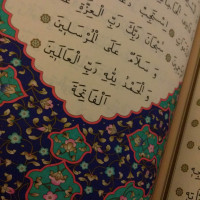 سُبْحَانَ رَبِّكَ رَبِّ الْعِزَّةِ
وَ سَلَامٌ عَلَى الْمُرْسَلِينَ
وَ الْحَمْدُ لِلّٰهِ رَبِّ الْعَالَمِينَ
اَلْفَاتِحَةَ